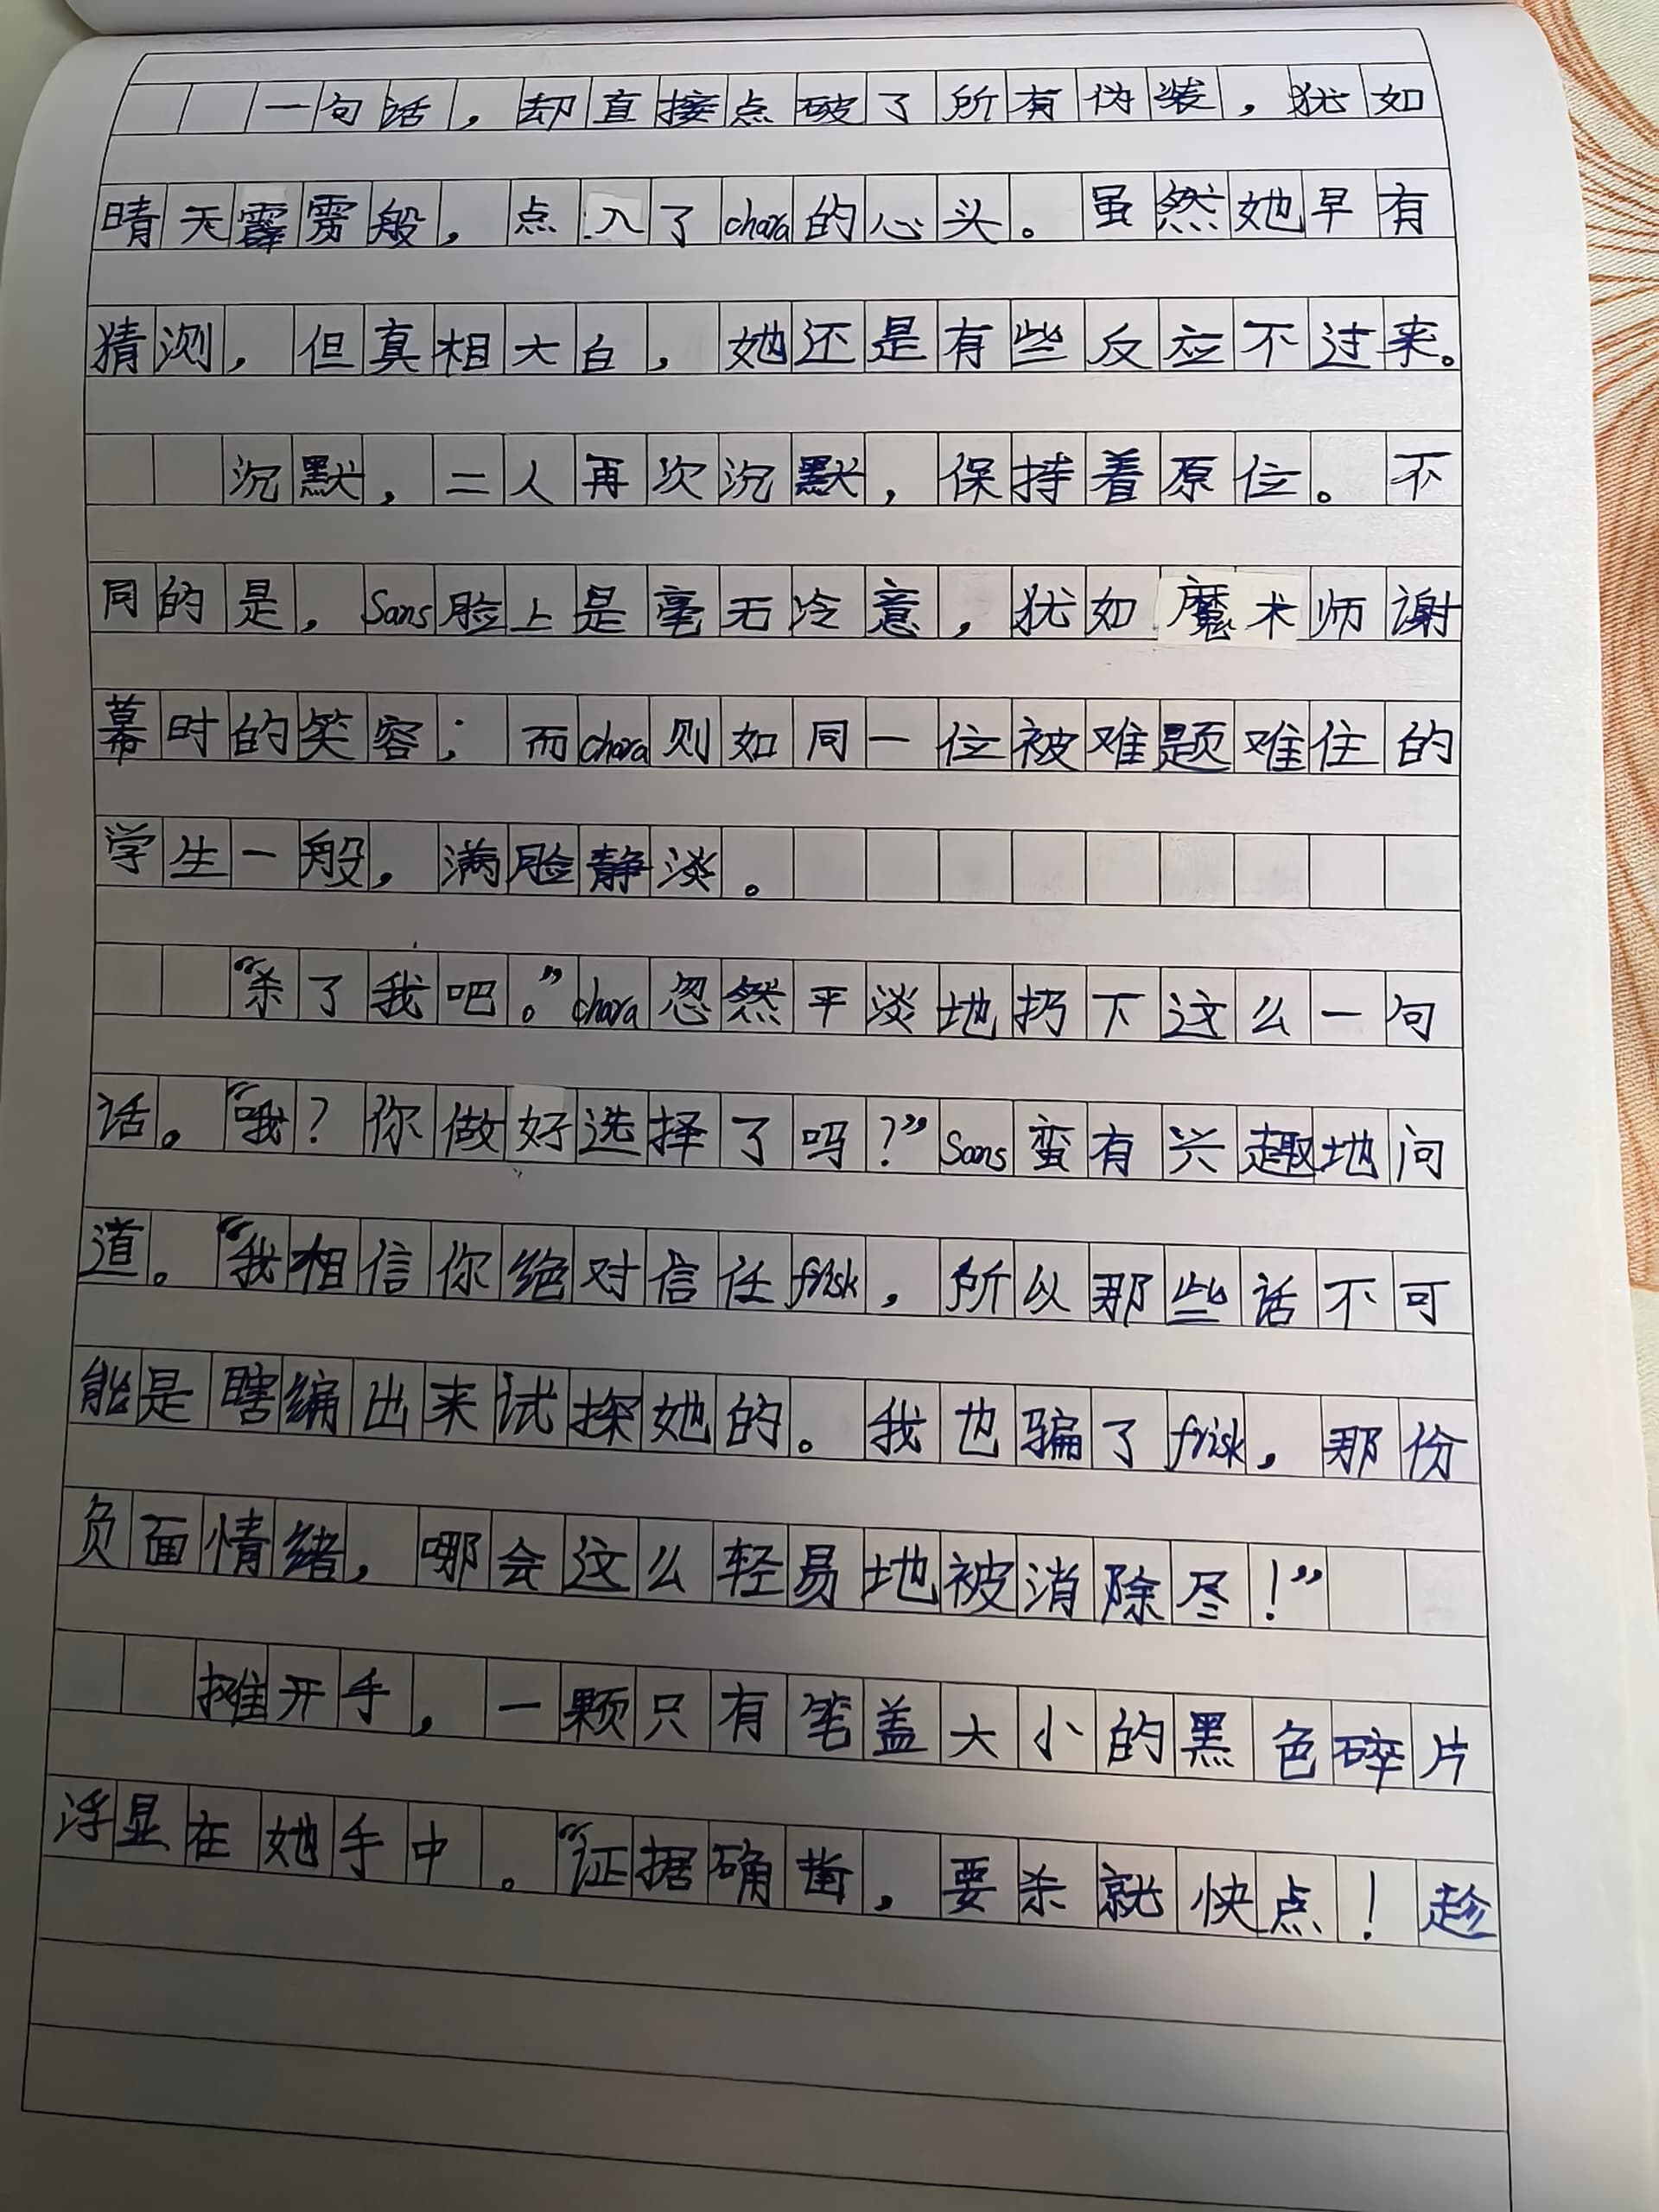 一句话，却直接点破了所有伪装，犹如
晴天霹雳般，点入了chara的心头。虽然她早有
猜测，但真相大白，她还是有些反应不过来。
沉默，二人再次沉默，保持着原位。不
同的是，Sans脸上是毫无冷意，犹如魔术师谢
幕时的笑容；而chara则如同一位被难题难住的
学生一般，满脸静淡。
“杀了我吧。”chara忽然平淡地扔下这么一句
话。“哦？你做好选择了吗？”Sans蛮有兴趣地问
道。“我相信你绝对信任frisk，所以那些话不可
能是瞎编出来试探她的。我也骗了frisk，那份
负面情绪，哪会这么轻易地被消除尽！”
摊开手，一颗只有笔盖大小的黑色碎片
浮显在她手中。“证据确凿，要杀就快点！趁